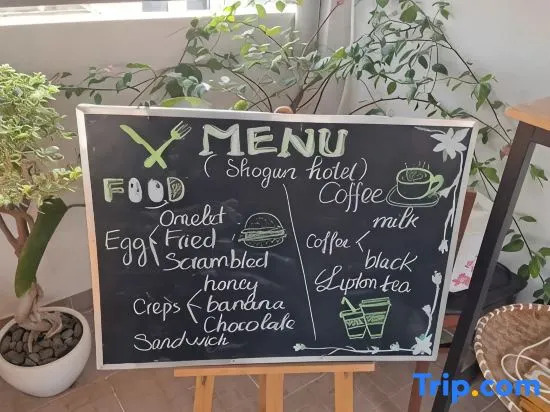 MENU
(Shogun hotel)
FOOD
Omelet
Egg Fried
Scrambled
honey
Creps banana
Chocolate
Sandwich
Coffee
milk
Coffee
black
Lipton tea
Trip.com